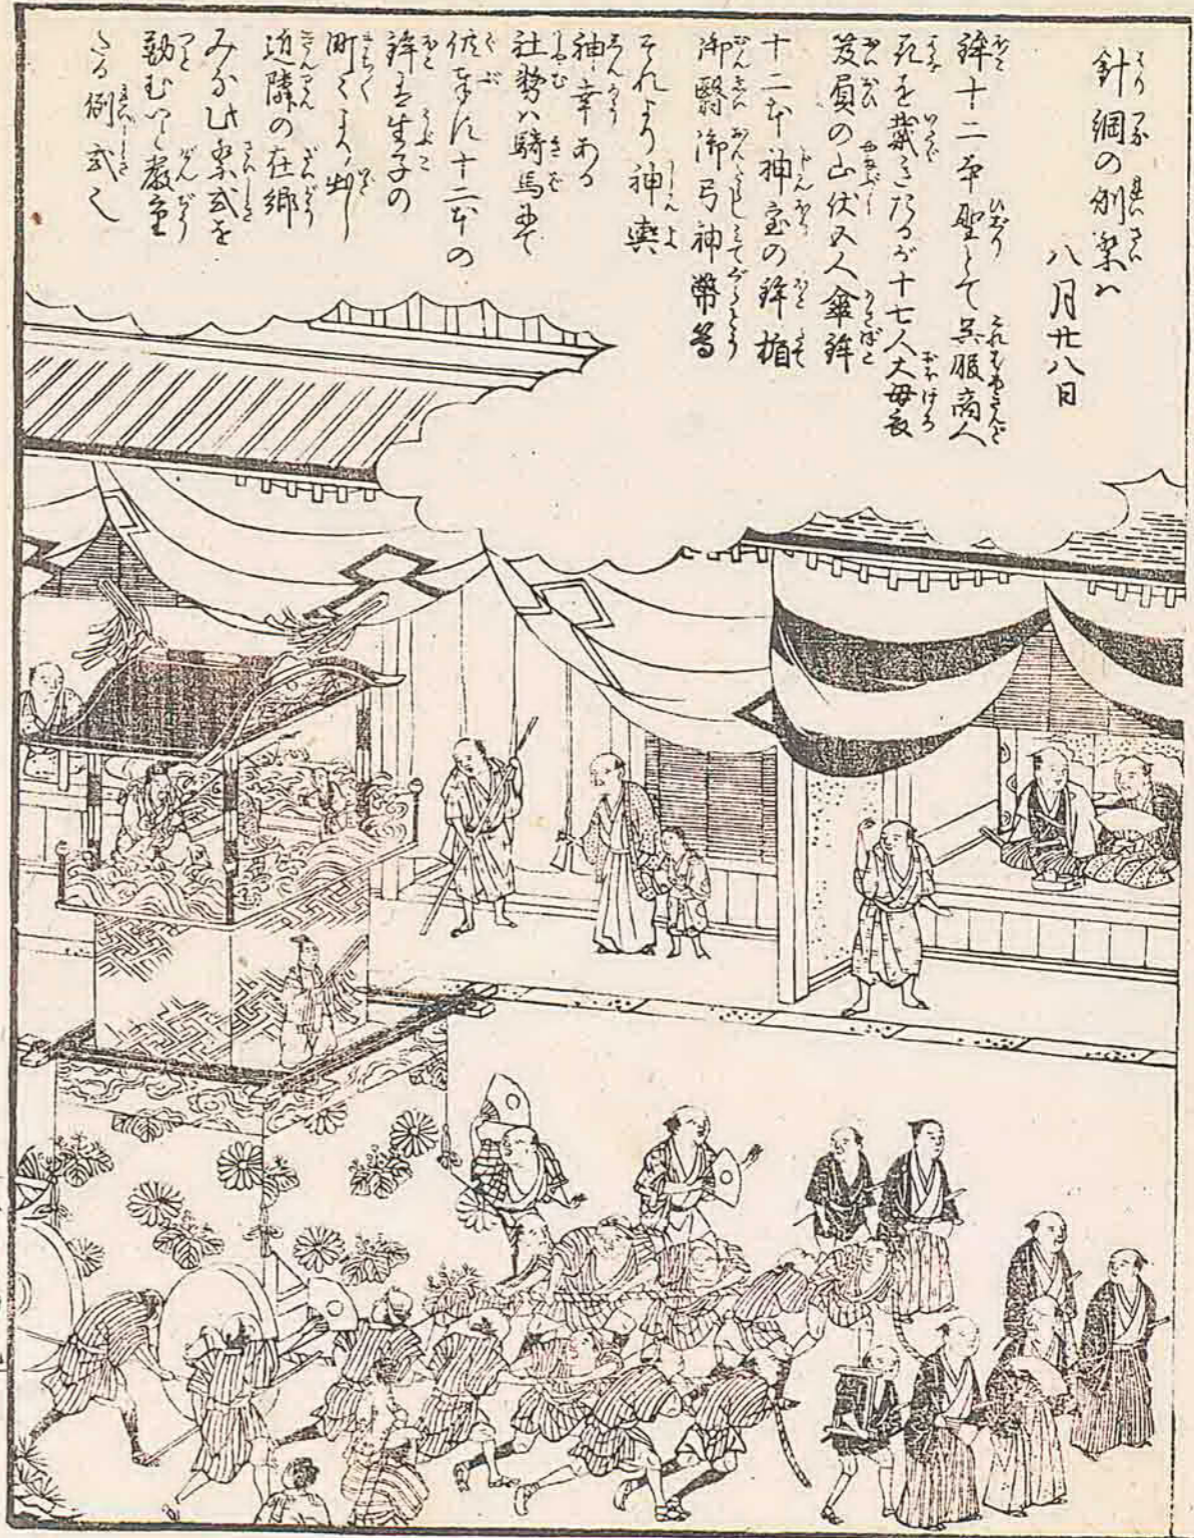 針綱の例祭ハ
八月廿八日
鉾十二本聖とて呉服商人
花を戴きたるが十七人大母衣
笈負の山伏五人傘鉾
十二本神宝の鉾楯
御翳御弓神幣等
それより神輿
神幸ある
社務ハ騎馬にて
供奉す十二本の
鉾を生子の
町〻より出し
近隣の在郷
みな此祭式を
勤むいと厳重
なる例式也